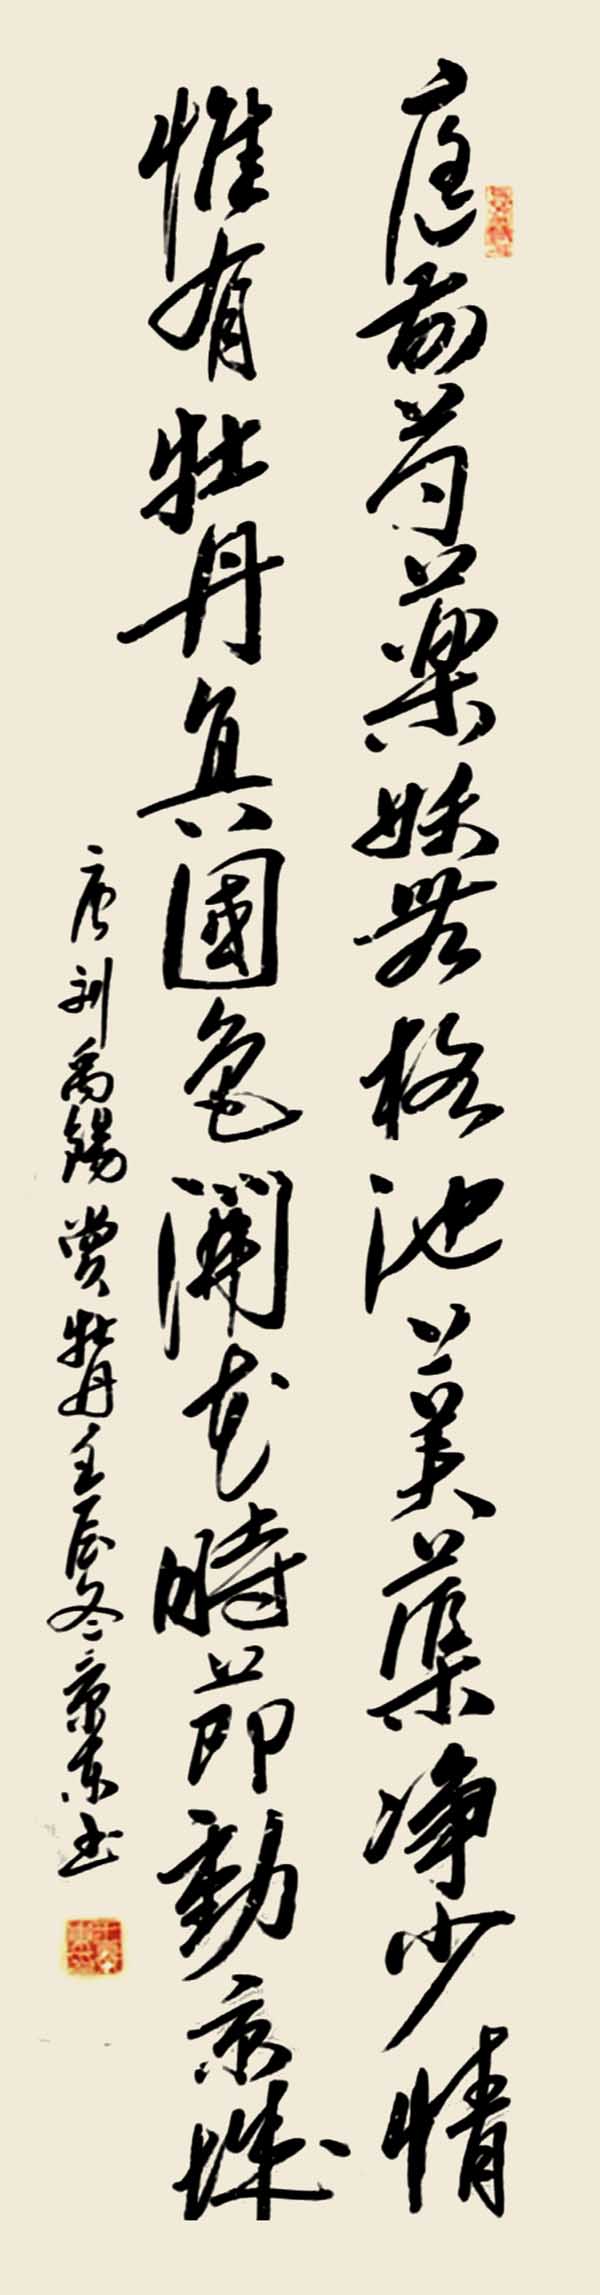 庭前芍藥妖無格池芙蕖净少情
惟有牡丹真國色開花時節動京城
唐劉禹錫賞牡丹壬辰冬景東书